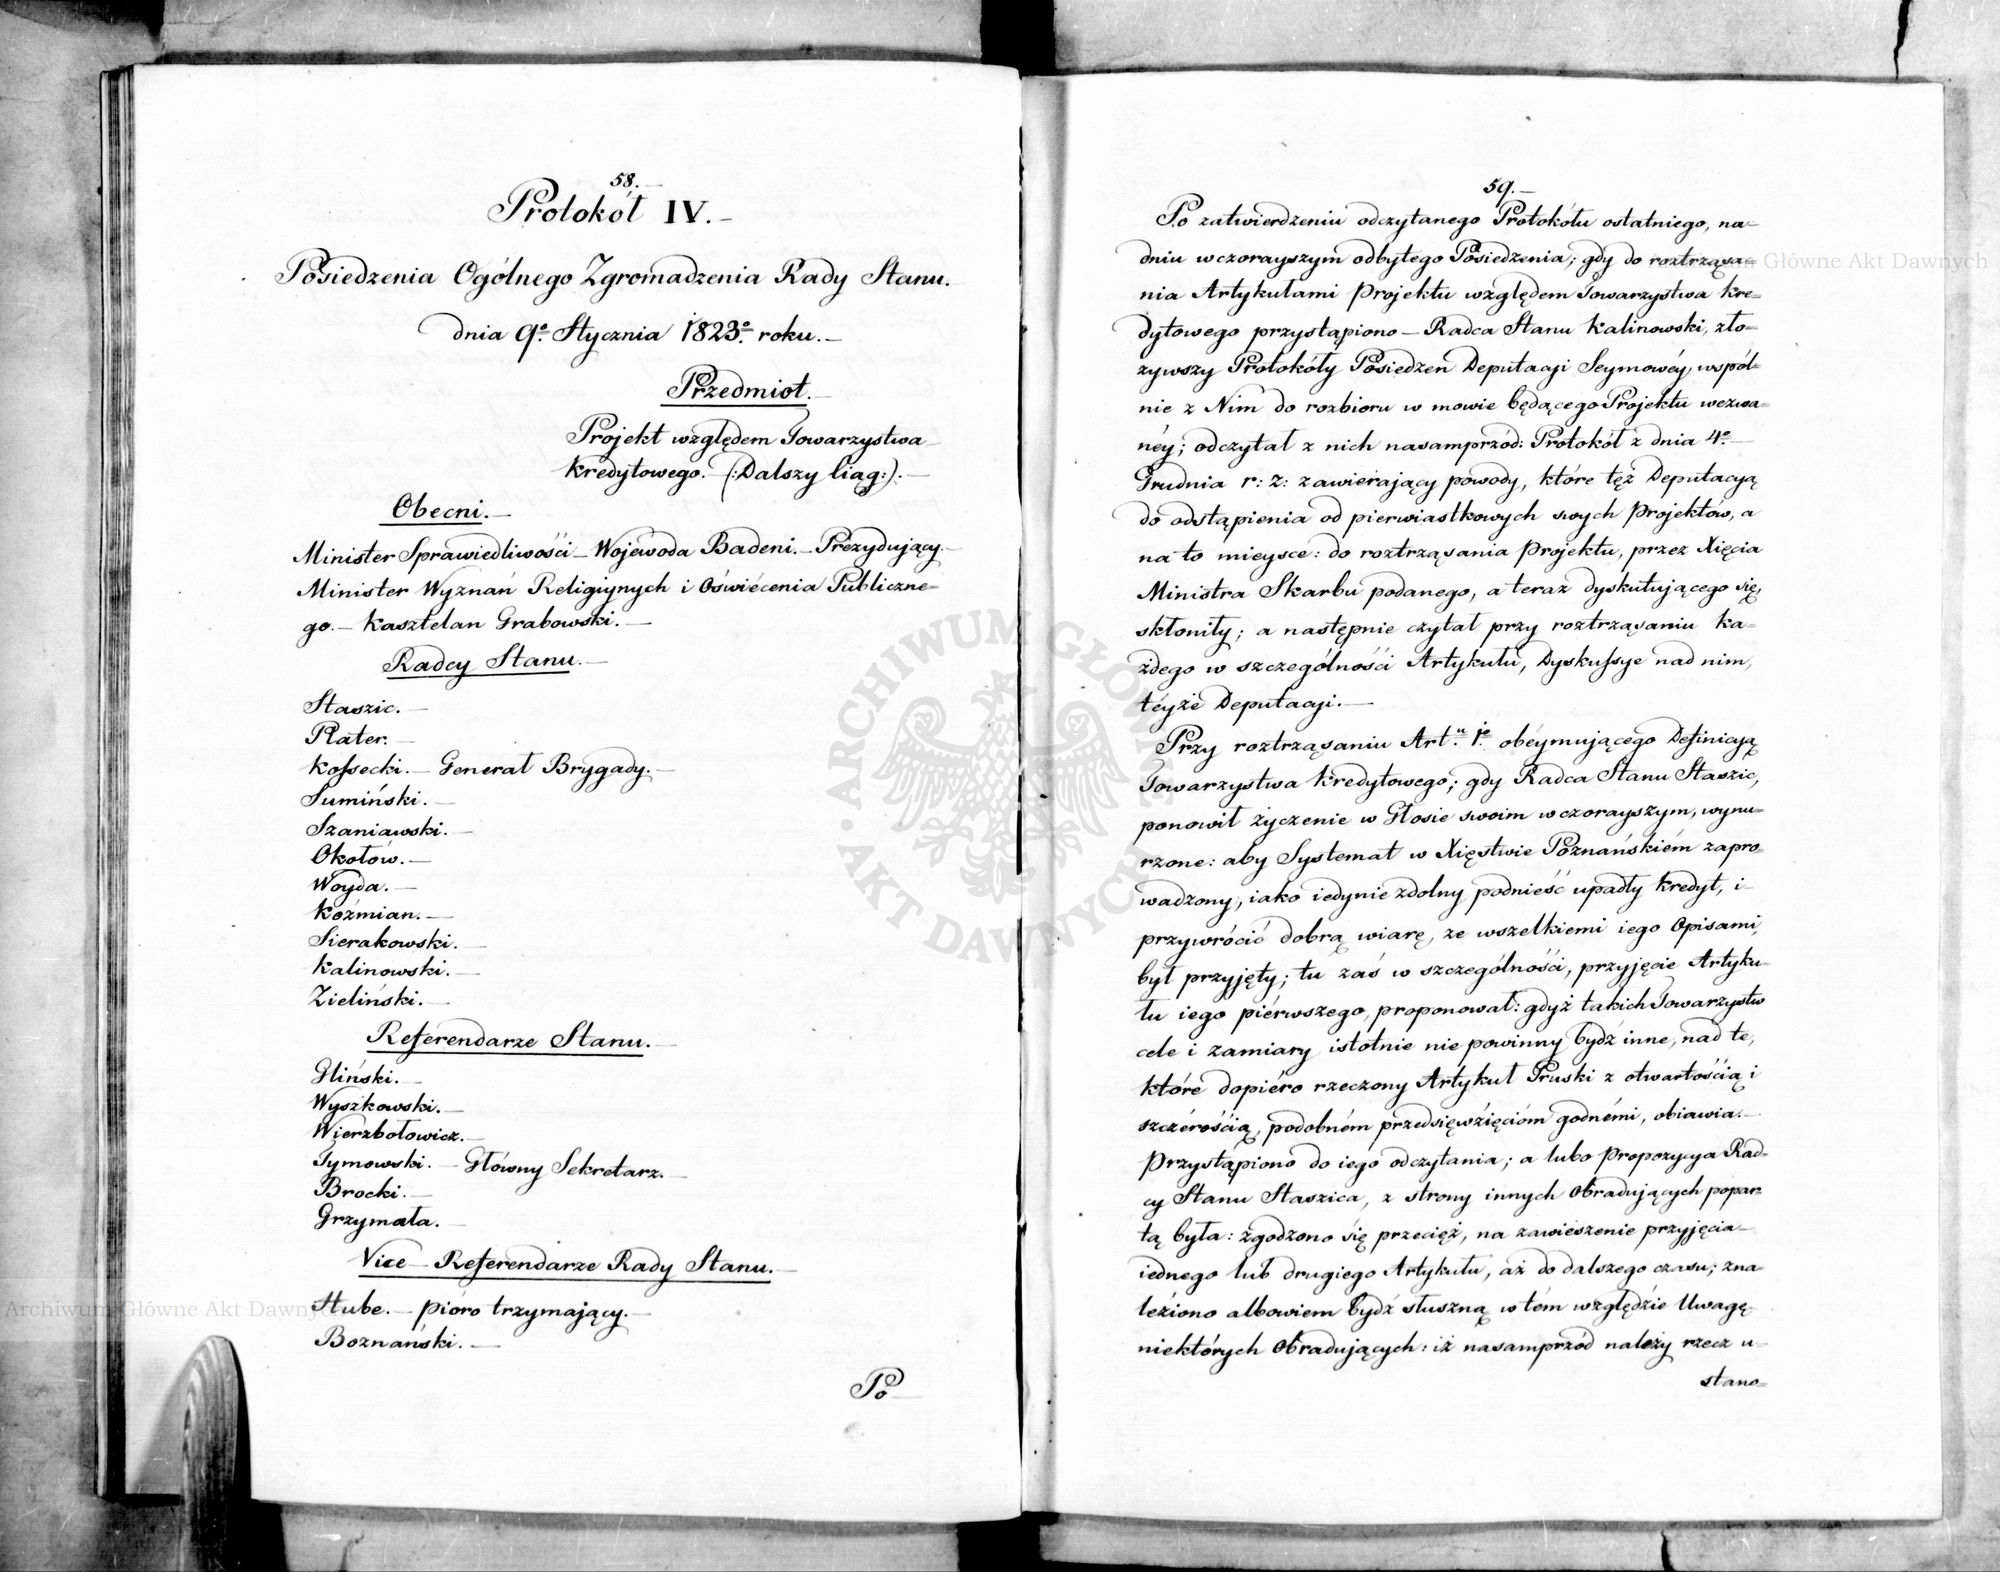 58.
Protokół IV.
Posiedzenia Ogólnego Zgromadzenia Rady Stanu.
dnia 9º Stycznia 1823º roku.
Przedmiot.
Projekt względem Towarzystwa
Kredytowego. (:Dalszy Ciąg:).
Obecni.
Minister Sprawiedliwości Wojewoda Badeni. Prezydujący.
Minister Wyznań Religiynych i Oświécenia Publiczne=
go. Kasztelan Grabowski.
Radcy Stanu.
Staszic.
Plater.
Kossecki. Generał Brygady.
Sumiński.
Szaniawski.
Okołów.
Woyda.
Koźmian.
Sierakowski.
Kalinowski.
Zieliński.
Referendarze Stanu.
Gliński.
Wyszkowski.
Wierzbołowicz.
Tymowski. Główny Sekretarz.
Brocki.
Grzymała.
Vice Referendarze Rady Stanu.
Hube. pióro trzymający.
Boznański.
Po
59.
Po zatwierdzeniu odczytanego Protokółu ostatniego, na=
dniu wczorayszym odbytego Posiedzenia; gdy do roztrząsa=
nia Artykułami Projektu względem Towarzystwa Kre=
dytowego przystąpiono – Radca Stanu Kalinowski, zło=
żywszy Protokóły Posiedzeń Deputacji Seymowéy, wspól=
nie z Nim do rozbioru w mowie będącego Projektu wezwa=
néy; odczytał z nich nasamprzód: Protokół z dnia 4º
Grudnia r: z: zawierający powody, które téż Deputacyą
do odstąpienia od pierwiastkowych swych Projektów, a
na to mieysce: do roztrząsania Projektu, przez Xięcia
Ministra Skarbu podanego, a teraz dyskutującego się,
skłoniły; a następnie czytał przy roztrząsaniu ka=
żdego w szczególności Artykułu, Dyskussye nad nim,
téyże Deputacji.
Przy roztrząsaniu Artu 1º obéymującego Definicyą
Towarzystwa Kredytowego; gdy Radca Stanu Staszic,
ponowił życzenie w Głosie swoim wczorayszym, wynu=
rzone: aby Systemat w Xięstwie Poznańskiém zapro=
wadzony, iako iedynie zdolny podnieść upadły Kredyt, i
przywrócić dobrą wiarę, ze wszelkiemi iego Opisami,
był przyjęty; tu zaś w szczególności, przyjęcie Artyku=
łu iego piérwszego, proponował: gdyż takich Towarzystw
cele i zamiary istotnie nie powinny bydź inne, nad te,
które dopiéro rzeczony Artykuł Pruski z otwartością i
szczérością, podobném przedsięwzięcióm godnémi, obiawia.
Przystąpiono do iego odczytania; a lubo Propozycya Rad=
cy Stanu Staszica, z strony innych Obradujących popar=
tą była: zgodzono się przecięż, na zawieszenie przyjęcia
iednego lub drugiego Artykułu, aż do dalszego czasu; zna=
leziono albowiem bydź słuszną w tém względzie Uwagę,
niektórych Obradujących: iż nasamprzód należy rzecz u=
stano=
Archiwum Główne Akt Dawnych
ARCHIWUM GŁÓWNE AKT DAWNYCH
Archiwum Główne Akt Dawnych